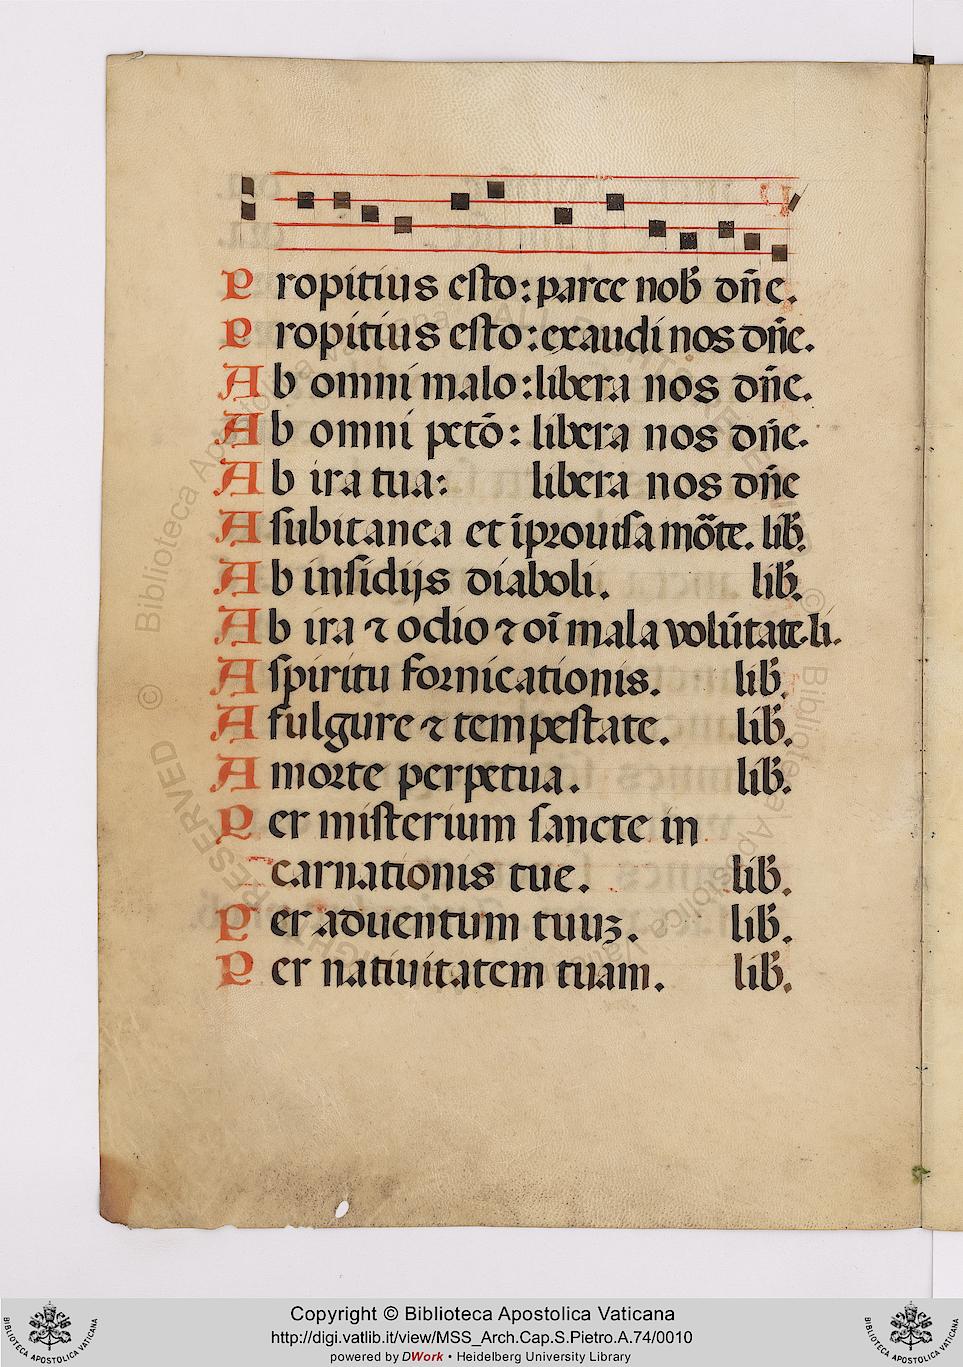 Propitius esto: parce nob̄ dn̄e.
Propitius esto: exaudi nos dn̄e.
Ab omni malo: libera nos dn̄e.
Ab omni pctō: libera nos dn̄e.
Ab ira tua: libera nos dn̄e
A subitanea et īprouisa mōte. lib̄.
Ab insidijs diaboli. lib̄.
Ab ira ⁊ odio ⁊ oī mala volūtate. li.
A spiritu fornicationis. lib̄.
A fulgure ⁊ tempestate. lib̄.
A morte perpetua. lib̄.
Per misterium sancte in
carnationis tue. lib̄.
Per aduentum tuuꝫ. lib̄.
Per natiuitatem tuam. lib̄.
© Biblioteca Apostolica Vaticana
ALL RIGHTS RESERVED
BIBLIOTECA APOSTOLICA VATICANA
Copyright © Biblioteca Apostolica Vaticana
http://digi.vatlib.it/view/MSS_Arch.Cap.S.Pietro.A.74/0010
powered by DWork • Heidelberg University Library
BIBLIOTECA APOSTOLICA VATICANA